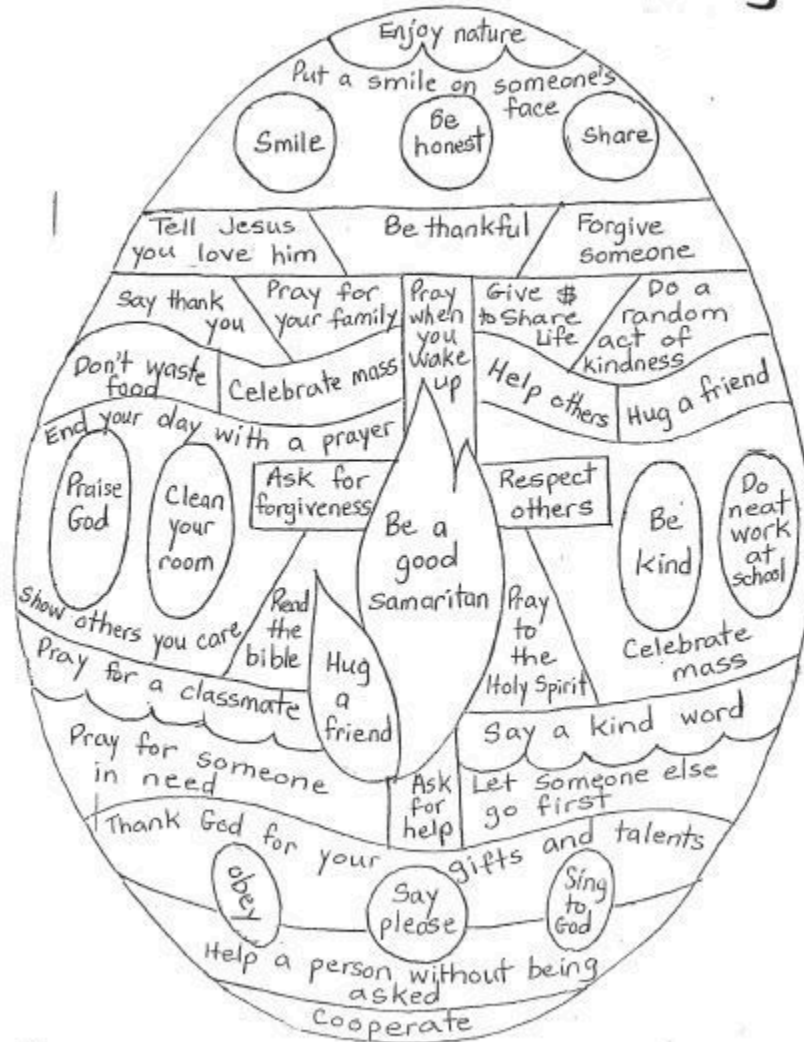 Enjoy nature
Put a smile on someone's
face
Smile
Be
honest
Share
Tell Jesus
you love him
Be thankful
Forgive
someone
Say thank
you
Pray for
your family
Pray
when
you
wake
up
Give $
to Share
Life
Do a
random
act of
kindness
Don't waste
food
Celebrate mass
Help others
Hug a friend
End your day with a prayer
Praise
God
Clean
your
room
Ask for
forgiveness
Respect
others
Be
kind
Do
neat
work
at
school
Be a
good
Samaritan
Show others you care
Read
the
bible
Hug
a
friend
Pray
to
the
Holy Spirit
Celebrate
mass
Pray for a classmate
Say a kind word
Pray for someone
in need
Ask
for
help
Let someone else
go first
Thank God for your gifts and talents
obey
Say
please
Sing
to
God
Help a person without being
asked
Cooperate